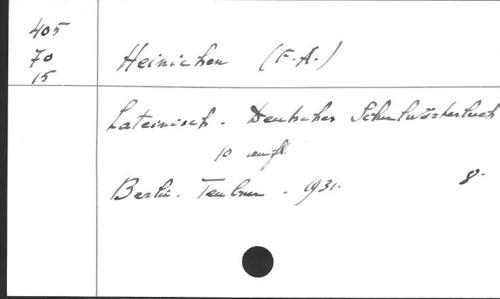 405
70
15
Heinichen (F. A.)
Lateinisch - Deutsches Schulwörterbuch
10 aufl
Berlin. Teubner. 1931. 8.